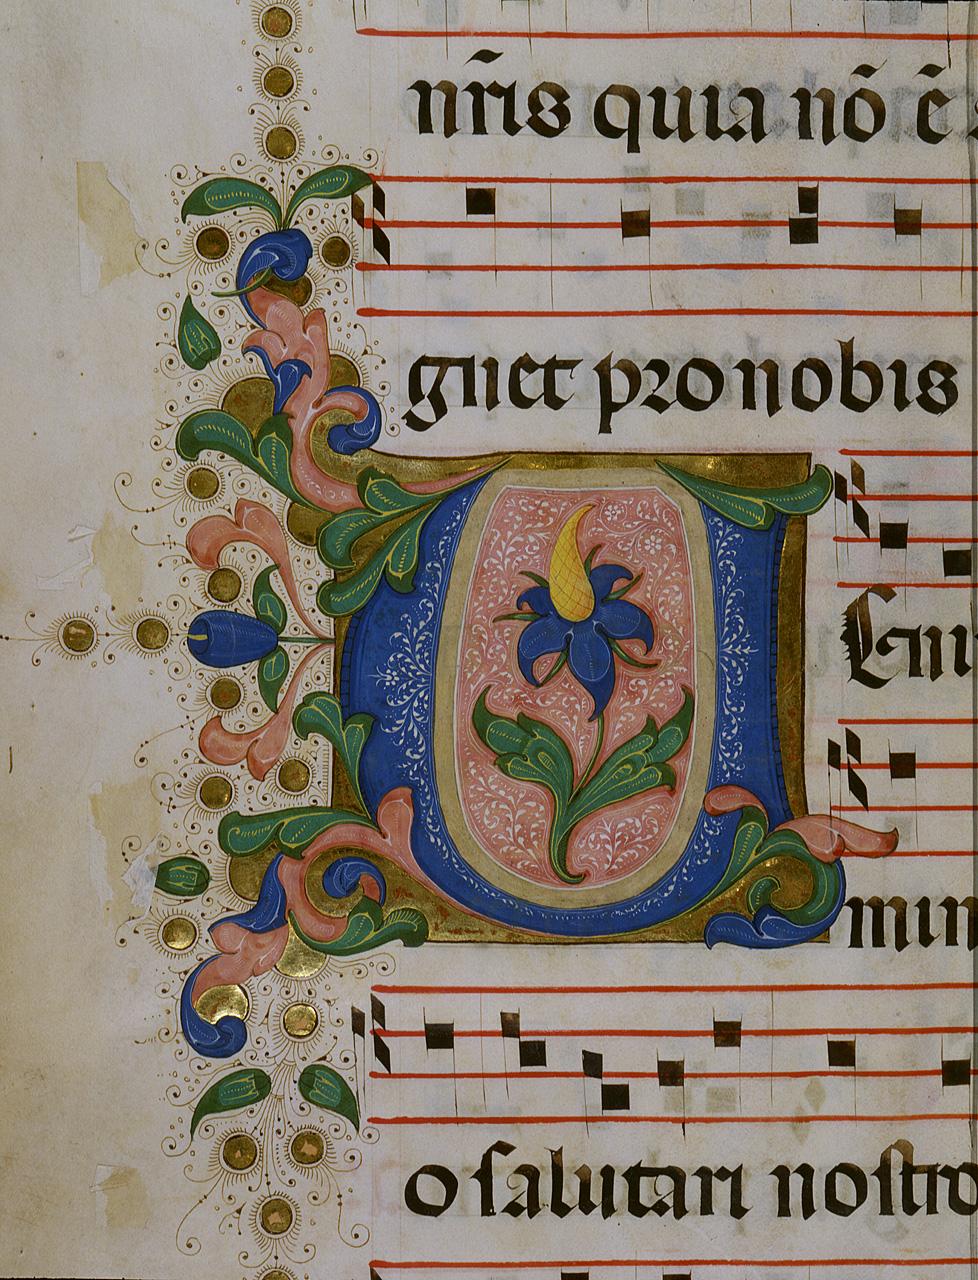 nr̄is quia nō ē
gnet pro nobis
U
Eni
min
o salutari nostro